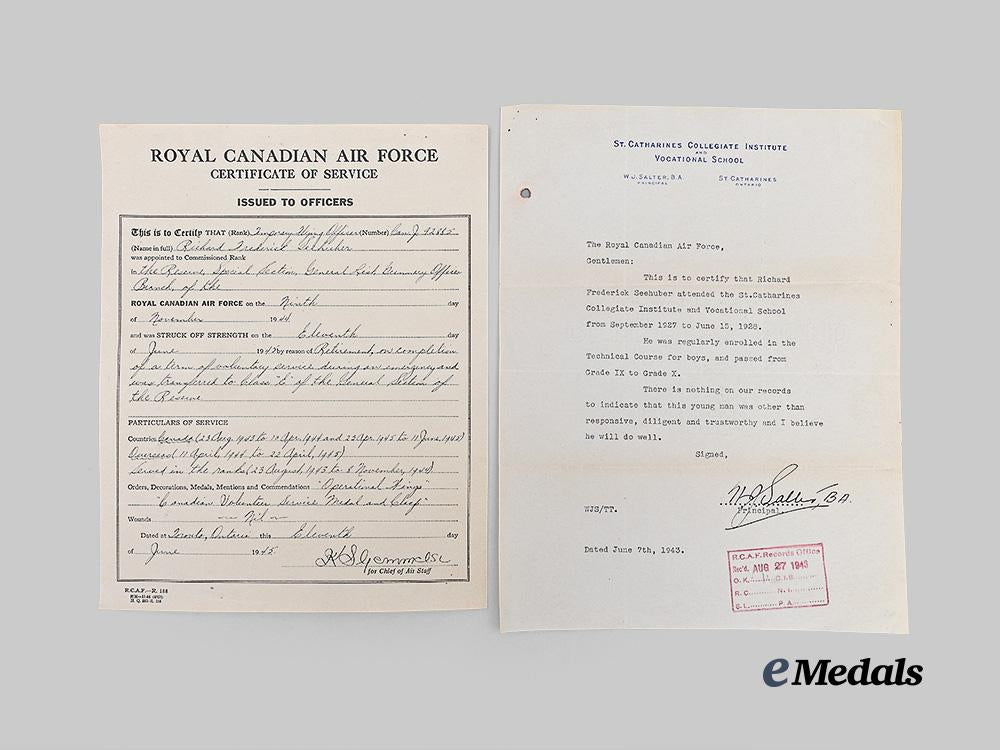 ROYAL CANADIAN AIR FORCE
CERTIFICATE OF SERVICE
ISSUED TO OFFICERS
This is to Certify THAT (Rank) Temporary Flying Officer (Number) Can. J 92865
(Name in full) Richard Frederick Seehuber
was appointed to Commissioned Rank
in the Reserve, Special Section, General List Gunnery Officer
Branch, of the
ROYAL CANADIAN AIR FORCE on the Ninth day
of November 1944
and was STRUCK OFF STRENGTH on the Eleventh day
of June 1945 by reason of Retirement, on completion
of a term of voluntary service during an emergency and
was transferred to Class "E" of the General Section of
the Reserve
PARTICULARS OF SERVICE
Countries Canada (23 Aug. 1943 to 10 Apr. 1944 and 23 Apr. 1945 to 11 June, 1945)
Overseas (11 April, 1944 to 22 April, 1945)
Served in the ranks (23 August, 1943 to 8 November, 1944)
Orders, Decorations, Medals, Mentions and Commendations "Operational Wings"
"Canadian Volunteer Service Medal and Clasp"
Wounds — Nil —
Dated at Toronto, Ontario this Eleventh day
of June 1945
for Chief of Air Staff
R.C.A.F.—R. 168
ST. CATHARINES COLLEGIATE INSTITUTE
AND
VOCATIONAL SCHOOL
W.J. SALTER, B.A. ST. CATHARINES
PRINCIPAL ONTARIO
The Royal Canadian Air Force,
Gentlemen:
This is to certify that Richard
Frederick Seehuber attended the St.Catharines
Collegiate Institute and Vocational School
from September 1927 to June 15, 1928.
He was regularly enrolled in the
Technical Course for boys, and passed from
Grade IX to Grade X.
There is nothing on our records
to indicate that this young man was other than
responsive, diligent and trustworthy and I believe
he will do well.
Signed,
WJ Salter, B.A.
Principal.
WJS/TT.
Dated June 7th, 1943.
R.C.A.F. Records Office
Rec'd. AUG 27 1943
O.K. C.I.B.
R.C. N.I.
S.L. P.A.
eMedals